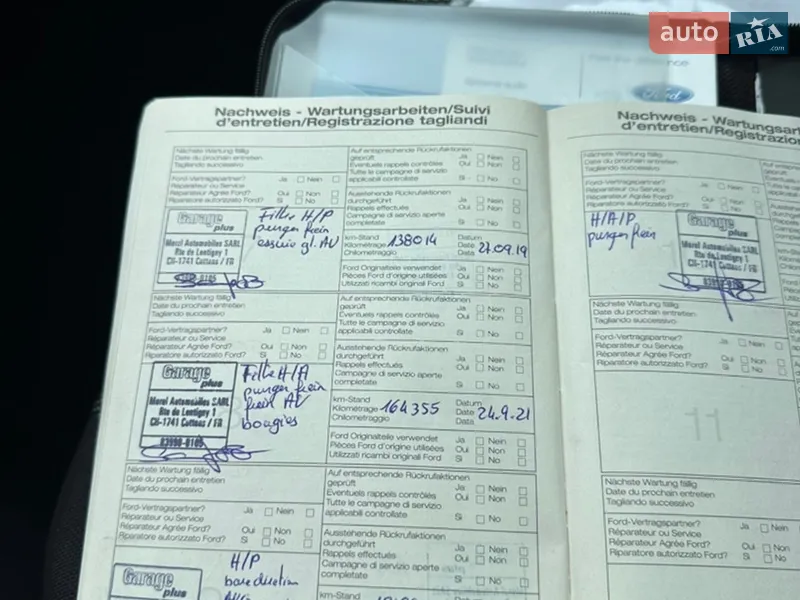 auto RIA .com
Ford
Nachweis - Wartungsarbeiten/Suivi
d'entretien/Registrazione tagliandi
Nächste Wartung fällig
Date du prochain entretien
Tagliando successivo
Ford-Vertragspartner? Ja Nein
Réparateur ou Service
Réparateur Agrée Ford? Oui Non
Riparatore autorizzato Ford? Si No
Auf entsprechende Rückrufaktionen
geprüft Ja Nein
Eventuels rappels contrôlés Oui Non
Tutte le campagne di servizio
applicabili controllate Si No
Ausstehende Rückrufaktionen
durchgeführt Ja Nein
Rappels effectués Oui Non
Campagne di servizio aperte
completate Si No
Garage
plus
Morel Automobiles SARL
Rte de Lentigny 1
CH-1741 Cottens / FR
Filtre H/P
purger frein
essuie gl. AV
km-Stand
Kilométrage 138014
Chilometraggio
Datum
Date 27.09.19
Data
Ford Originalteile verwendet Ja Nein
Pièces Ford d'origine utilisées Oui Non
Utilizzati ricambi originali Ford Si No
Nächste Wartung fällig
Date du prochain entretien
Tagliando successivo
Ford-Vertragspartner? Ja Nein
Réparateur ou Service
Réparateur Agrée Ford? Oui Non
Riparatore autorizzato Ford? Si No
Auf entsprechende Rückrufaktionen
geprüft Ja Nein
Eventuels rappels contrôlés Oui Non
Tutte le campagne di servizio
applicabili controllate Si No
Ausstehende Rückrufaktionen
durchgeführt Ja Nein
Rappels effectués Oui Non
Campagne di servizio aperte
completate Si No
Garage
plus
Morel Automobiles SARL
Rte de Lentigny 1
CH-1741 Cottens / FR
83990-0105
Filtre H/A
purger frein
frein AV
bougies
km-Stand
Kilométrage 164355
Chilometraggio
Datum
Date 24.9.21
Data
Ford Originalteile verwendet Ja Nein
Pièces Ford d'origine utilisées Oui Non
Utilizzati ricambi originali Ford Si No
Nächste Wartung fällig
Date du prochain entretien
Tagliando successivo
Ford-Vertragspartner? Ja Nein
Réparateur ou Service
Réparateur Agrée Ford? Oui Non
Riparatore autorizzato Ford? Si No
Auf entsprechende Rückrufaktionen
geprüft Ja Nein
Eventuels rappels contrôlés Oui Non
Tutte le campagne di servizio
applicabili controllate Si No
Ausstehende Rückrufaktionen
durchgeführt Ja Nein
Rappels effectués Oui Non
Campagne di servizio aperte
completate Si No
Garage
plus
H/P
km-Stand
Nachweis - Wartungsar
d'entretien/Registrazio
Nächste Wartung fällig
Date du prochain entretien
Tagliando successivo
Ford-Vertragspartner? Ja Nein
Réparateur ou Service
Réparateur Agrée Ford? Oui Non
Riparatore autorizzato Ford? Si No
H/A/P
purger frein
Garage
plus
Morel Automobiles SARL
Rte de Lentigny 1
CH-1741 Cottens / FR
Nächste Wartung fällig
Date du prochain entretien
Tagliando successivo
Ford-Vertragspartner? Ja Nein
Réparateur ou Service
Réparateur Agrée Ford? Oui Non
Riparatore autorizzato Ford? Si No
11
Nächste Wartung fällig
Date du prochain entretien
Tagliando successivo
Ford-Vertragspartner? Ja
Réparateur ou Service
Réparateur Agrée Ford? Oui
Riparatore autorizzato Ford? Si